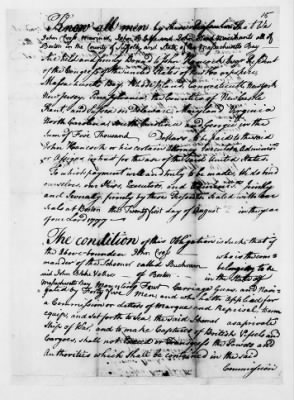 15
Know all men by these Presents, That We
John
in the County of Suffolk and State of Massachusetts Bay
are held and firmly bound to John Hancock Esqr. President
of the Congress of the United States of
Massachusetts Bay, Rhode Island, Connecticut, New York
New Jersey, Pensylvania, the Counties of New Castle
Kent and Sussex on Delaware, Maryland, Virginia
North Carolina, South Carolina and Georgia in the
Sum of Five Thousand Dollars to be paid to the said
John Hancock or his certain Attorney Executors, Administrators
or Assigns in trust for the use of the said United States
To which payment well and truly to be made, We do bind
ourselves, our Heirs, Executors, and Administrators jointly
and Severally firmly by these Presents, Sealed with our
seals at Boston this Twenty first day of August in the year
of our Lord 1777
The Condition of this Obligation is Such that if
the above-bounden John who is the com
mander of the Schooner called belonging to
and John of Boston in the State of
Massachusetts Bay, Mounting Four Carriage Guns, and Navi
gated by Forty five Men, and who hath applied for
a Commission or Letters of Marque and Reprisal, to arm
equip, and set forth to Sea the said Schooner as a private
Ship of War, and to make Captures of British Vessels and
Cargoes, shall not Exceed or transgress the Powers and
Authorities which Shall be contained in the said
Commission